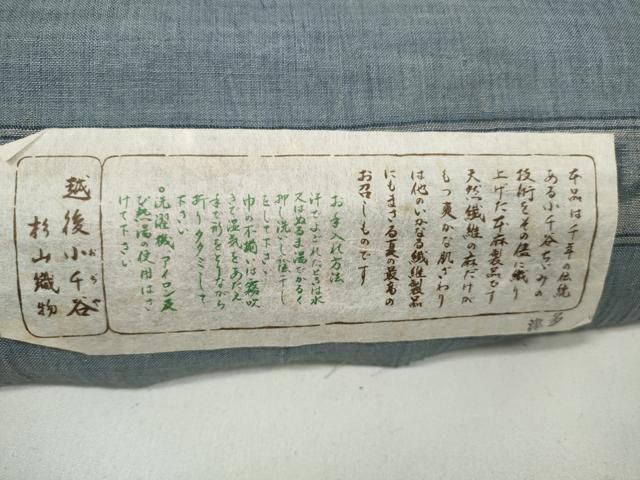 本品は千年の伝統
ある小千谷ちぢみの
技術をその侭に織り
上げた本麻製品です
天然繊維の麻だけが
もつ爽かな肌ざわり
は他のいかなる繊維製品
にもまさる夏の最高の
お召しものです
お手入れ方法
汗でよごれたときは水
又はぬるま湯でかるく
押し洗いし陰干し
をして下さい
巾の不揃いは霧吹
きで湿気をあたえ
手で形をとりながら
折りタタミして
下さい
○洗濯機、アイロン及
び熱湯の使用はさ
けて下さい
越後小千谷
おぢや
杉山織物